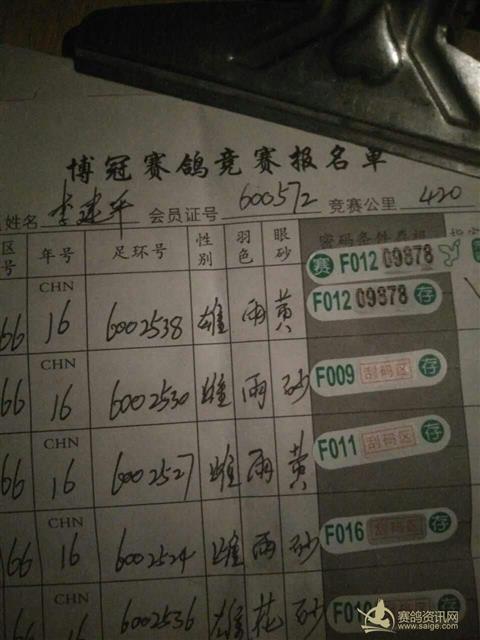 博冠赛鸽竞赛报名单
姓名 李建平 会员证号 600572 竞赛公里 420
区号 年号 足环号 性别 羽色 眼砂
赛 F012 09878
F012 09878 存
66 CHN 16 6002538 雄 雨 黄
66 CHN 16 6002530 雄 雨 砂 F009 刮码区 存
66 CHN 16 6002527 雌 雨 黄 F011 刮码区 存
66 CHN 16 6002524 雌 雨 砂 F016 刮码区 存
CHN 6002536 雄 花 砂
赛鸽资讯网
www.saige.com